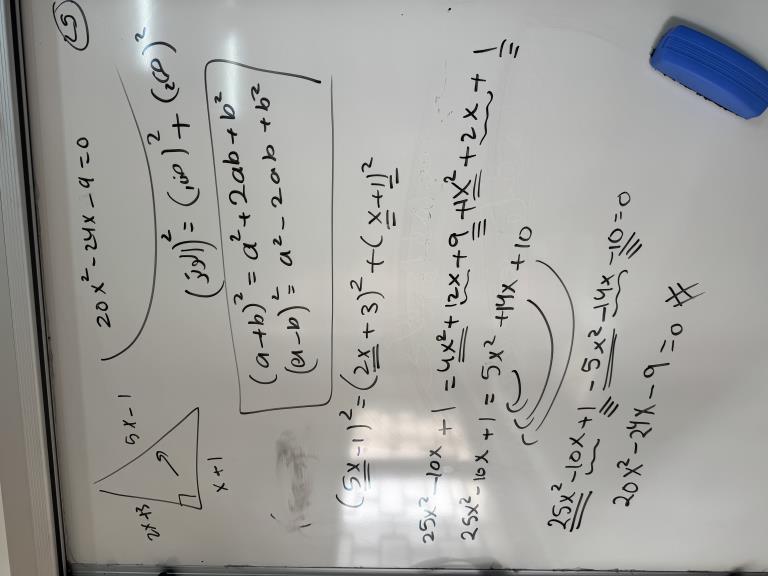 25
20x² - 24x - 9 = 0
(الوتر)² = (ض₁)² + (ض₂)²
(a+b)² = a² + 2ab + b²
(a-b)² = a² - 2ab + b²
2x+3
5x-1
x+1
(5x-1)² = (2x+3)² + (x+1)²
25x² - 10x + 1 = 4x² + 12x + 9 + 1x² + 2x + 1
25x² - 10x + 1 = 5x² + 14x + 10
25x² - 10x + 1 - 5x² - 14x - 10 = 0
20x² - 24x - 9 = 0 #